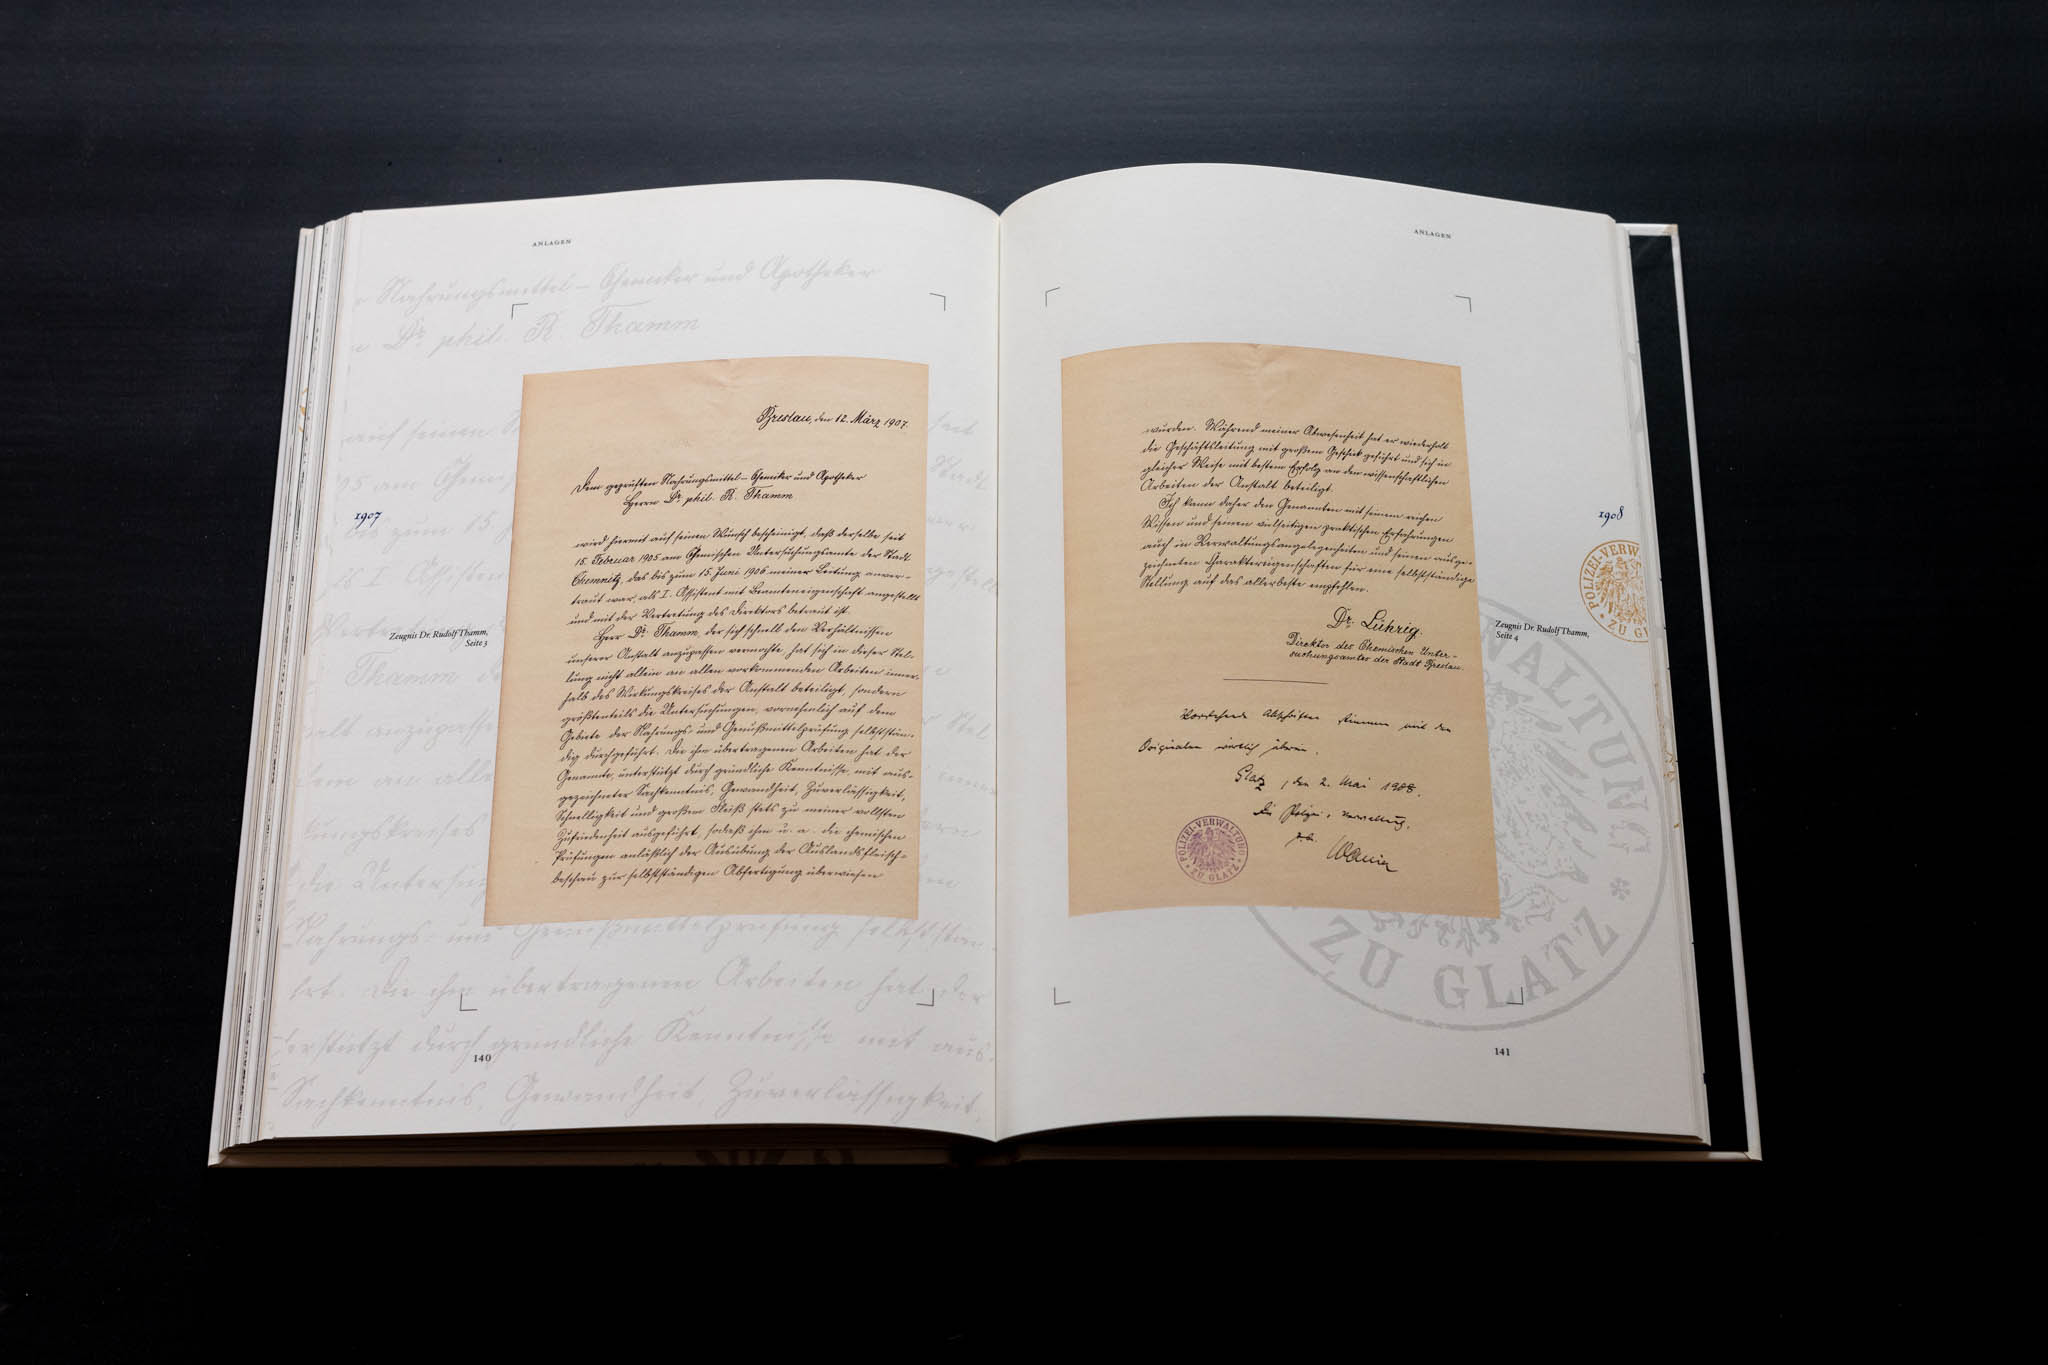 ANLAGEN
Nahrungsmittel-Chemiker und Apotheker
Dr. phil. R. Thamm
1907
Zeugnis Dr. Rudolf Thamm,
Seite 3
Breslau, den 12. März 1907.
Dem geprüften Nahrungsmittel-Chemiker und Apotheker
Herrn Dr. phil. R. Thamm
wird hiermit auf seinen Wunsch bescheinigt, daß derselbe seit
15. Februar 1905 am Chemischen Untersuchungsamte der Stadt
Chemnitz, das bis zum 15. Juni 1906 meiner Leitung anver-
traut war, als I. Assistent mit Beamteneigenschaft angestellt
und mit der Vertretung des Direktors betraut ist.
Herr Dr. Thamm, der sich schnell den Verhältnissen
unserer Anstalt anzupassen vermochte, hat sich in dieser Stel-
lung nicht allein an allen vorkommenden Arbeiten inner-
halb des Wirkungskreises der Anstalt beteiligt, sondern
größtenteils die Untersuchungen, vornehmlich auf dem
Gebiete der Nahrungs- und Genußmittelprüfung selbststän-
dig durchgeführt. Die ihm übertragenen Arbeiten hat der
Genannte, unterstützt durch gründliche Kenntnisse, mit aus-
gezeichneter Sachkenntnis, Gewandheit, Zuverlässigkeit,
Schnelligkeit und großem Fleiß stets zu meiner vollsten
Zufriedenheit ausgeführt, sodaß ihm u. a. die chemischen
Prüfungen anläßlich der Ausübung der Auslandsfleisch-
beschau zur selbstständigen Abfertigung überwiesen
140
ANLAGEN
wurden. Während meiner Abwesenheit hat er wiederholt
die Geschäftsleitung mit großem Geschick geführt und sich in
gleicher Weise mit bestem Erfolg an den wissenschaftlichen
Arbeiten der Anstalt beteiligt.
Ich kann daher den Genannten mit seinem reichen
Wissen und seinen vielseitigen praktischen Erfahrungen
auch in Verwaltungsangelegenheiten und seinen ausge-
zeichneten Charaktereigenschaften für eine selbstständige
Stellung auf das allerbeste empfehlen.
Dr. Lührig.
Direktor des Chemischen Unter-
suchungsamtes der Stadt Breslau.
Vorstehende Abschriften stimmen mit den
Originalen wörtlich überein.
Glatz, den 2. Mai 1908.
Die Polizei-Verwaltung.
POLIZEI-VERWALTUNG
ZU GLATZ
1908
POLIZEI-VERW
ZU GL
Zeugnis Dr. Rudolf Thamm,
Seite 4
WALTUNG
ZU GLATZ
141